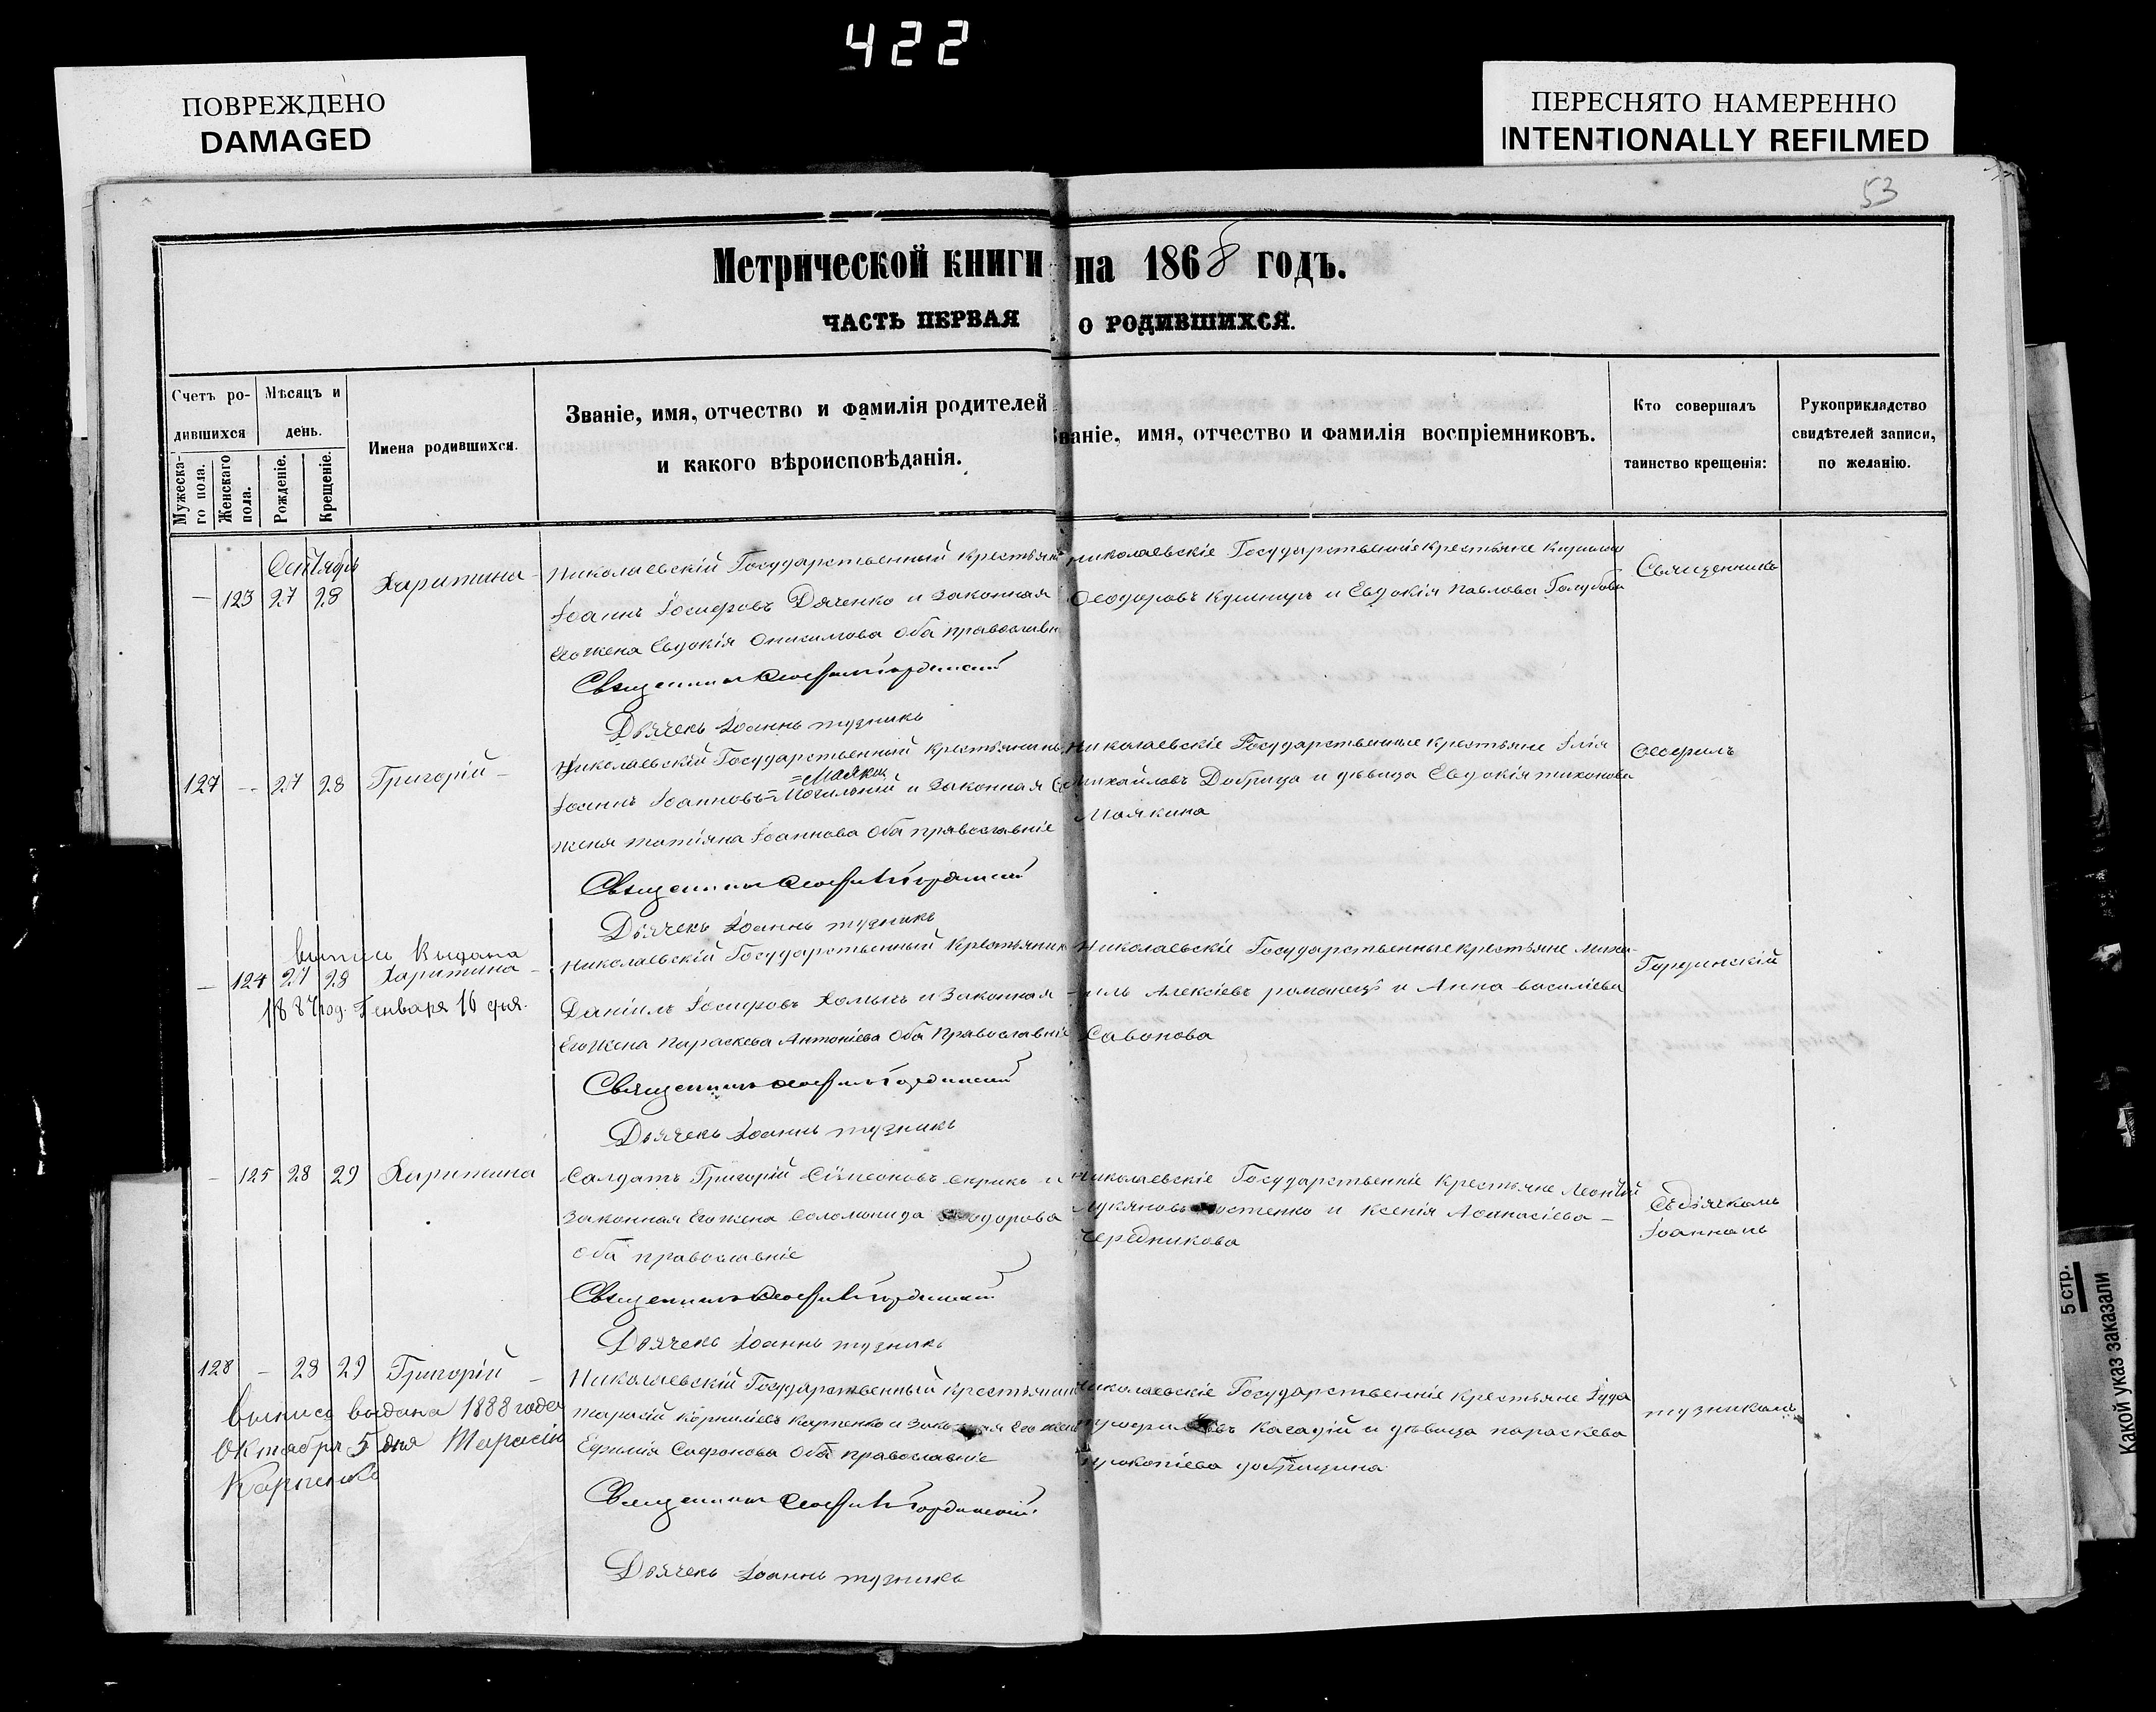 422
ПОВРЕЖДЕНО
DAMAGED
ПЕРЕСНЯТО НАМЕРЕННО
INTENTIONALLY REFILMED
53
Метрической книги на 1868 годъ.
ЧАСТЬ ПЕРВАЯ О РОДИВШИХСЯ.
Счетъ родившихся
Мужеска-
го пола.
Женскаго
пола.
Мѣсяцъ и
день.
Рожденіе.
Крещеніе.
Имена родившихся.
Званіе, имя, отчество и фамилія родителей
и какого вѣроисповѣданія.
Званіе, имя, отчество и фамилія воспріемниковъ.
Кто совершалъ
таинство крещенія:
Рукоприкладство
свидѣтелей записи,
по желанію.
Сентябрь
— 123 27 28 Харитина
Николаевскій Государственный крестьянинъ
Іоаннъ Іосифовъ Дяченко и законная
его жена Евдокія Онисимова оба православн
Священникъ Ѳеофилъ Гординскій
Дьячекъ Іоаннъ тузникъ
Николаевскіе Государственніе крестьяне
Ѳеодоровъ и Евдокія Павлова Голубова
Священникъ
127 -- 27 28 Григорій —
Николаевскій Государственный крестьянинъ
=Маяки
Іоаннъ Іоанновъ=Могильній и законная Его
жена татіяна Іоаннова оба православніе
Священникъ Ѳеофилъ Гординскій
Дьячекъ Іоаннъ тузникъ
Николаевскіе Государственные крестьяне Илія
Михайловъ Добрица и дѣвица Евдокія тихонова
Маякина
Ѳеофилъ
выпись выдана
— 124 27 28 Харитина —
1887 год. Генваря 16 дня.
Николаевскій Государственный Крестьянин
Даніилъ Іосифовъ Хомыкъ и Законная
Его жена Параскева Антоніева оба Православніе
Священникъ Ѳеофилъ Гординскій
Дьячекъ Іоаннъ тузникъ
Николаевскіе Государственные крестьяне Миха-
илъ Алексіевъ романецъ и Анна василіева
Савонова
Гординскій
— 125 28 29 Харитина
Салдатъ Григорій Сѵмеоновъ скрикъ и
законная Его жена Соломонида Ѳеодорова
оба православніе
Священникъ Ѳеофилъ Гординскій
Дьячекъ Іоаннъ тузникъ
Николаевскіе Государственніе Крестьяне Леонтій
Лукяновъ и Ксенія Аѳанасіева —
Чередникова
Съ дьячкомъ
Іоанномъ
128 — 28 29 Григорій —
Выпись выдана 1888 года
Октября 5 дня Тарасію
Карпенко
Николаевскій Государственный крестьянин
тарасій Корниліевъ Карпенко и законная его жена
Ефимія Сафонова оба православніе
Священникъ Ѳеофилъ Гординскій
Дьячекъ Іоаннъ тузникъ
Николаевскіе Государственніе крестьяне Іуда
и дѣвица параскева
прокопіева добрицина
тузникомъ
5 стр.
Какой указ заказали